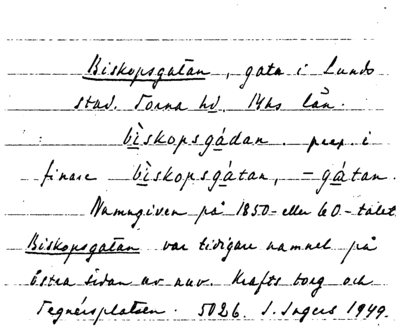 Biskopsgatan, gata i Lunds
stad. Torna hd. Mhs län.
bìskopsgádan. peep. i
finare bìskopsgátan, -gátan.
Namngiven på 1850- eller 60-talet.
Biskopsgatan var tidigare namnet på
östra sidan av nuv. Krafts torg och
Tegnérsplatsen. 5026. I. Ingers 1949.